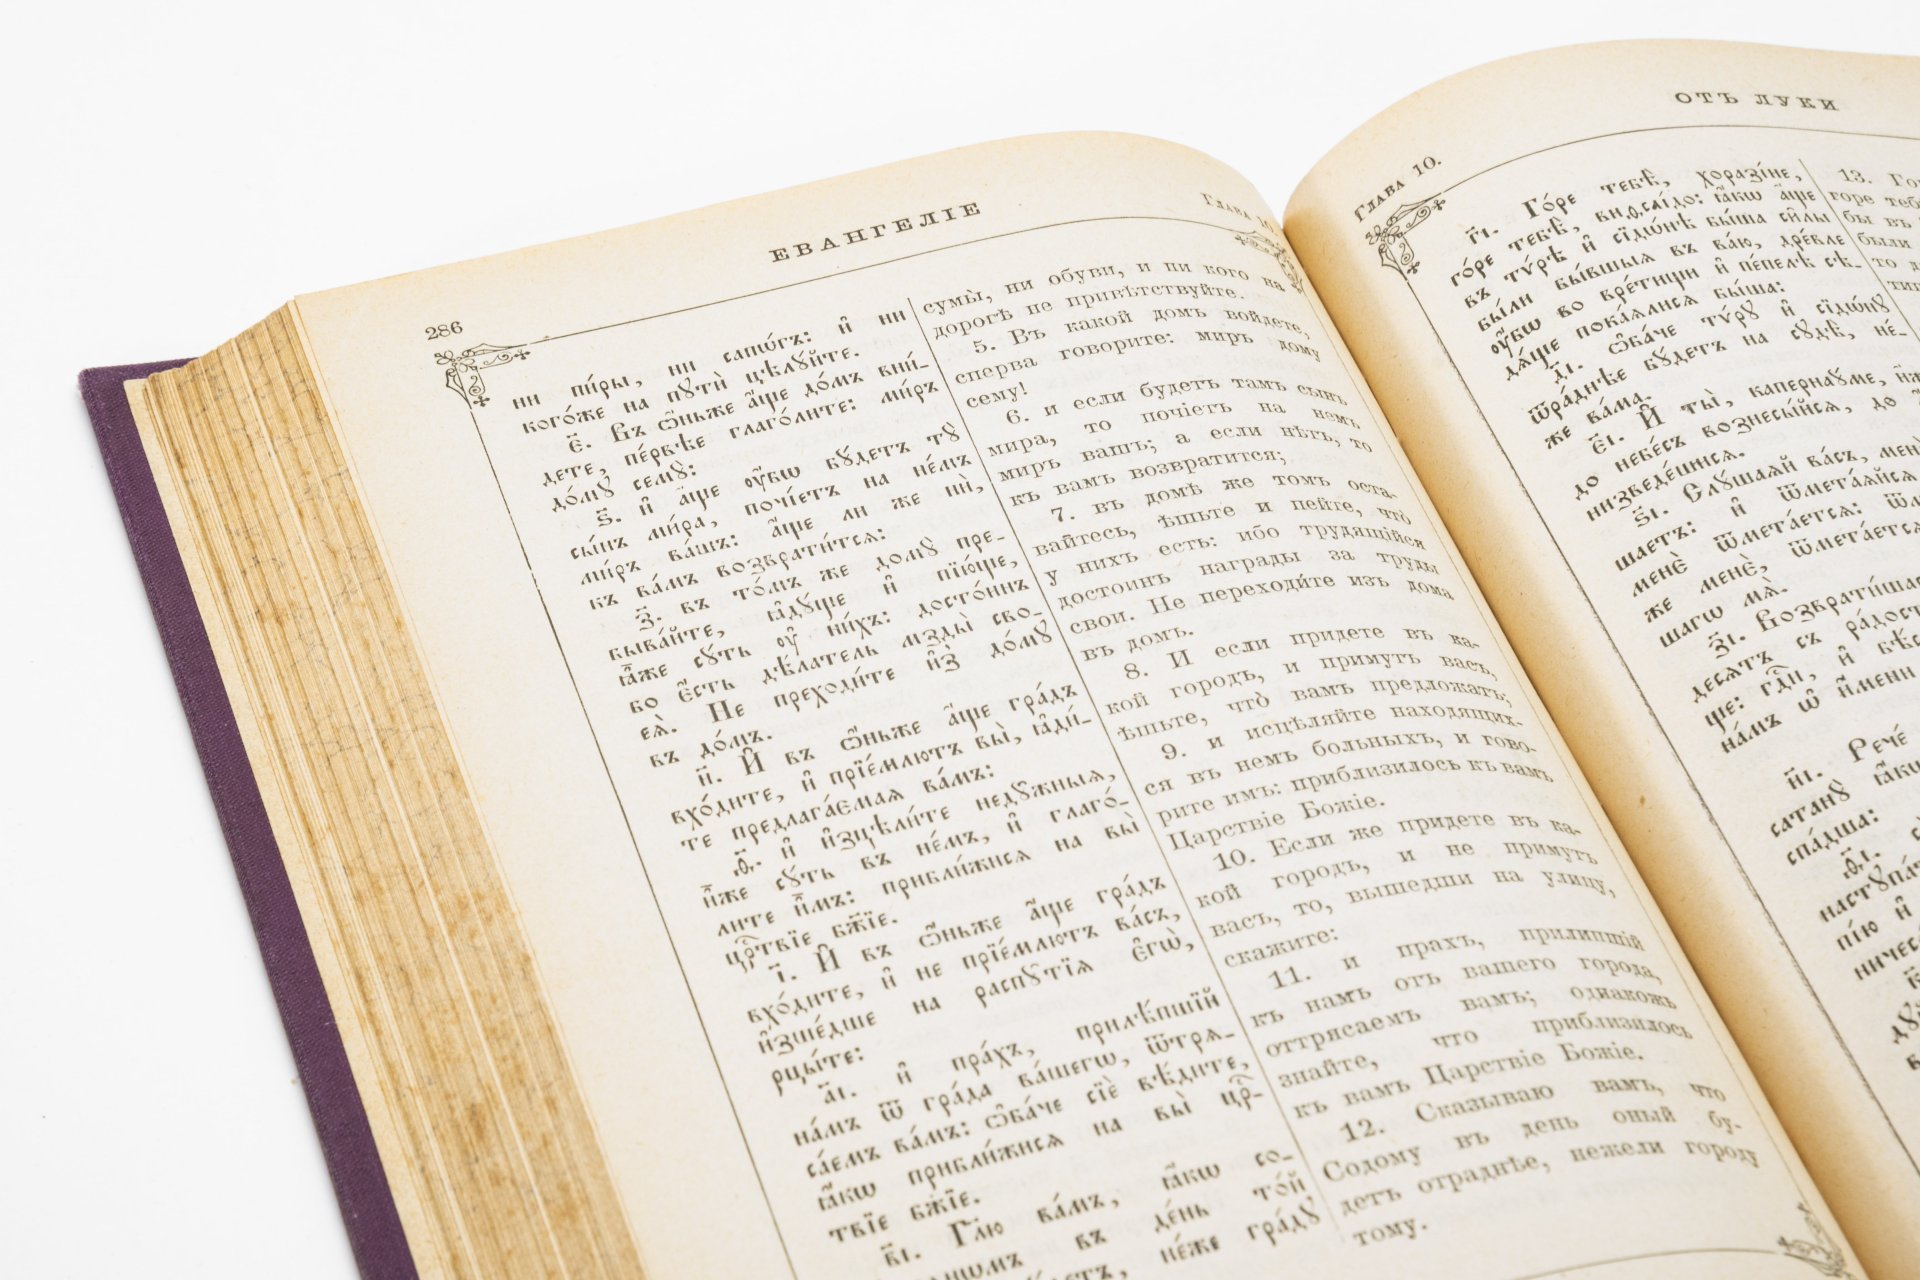 286
ЕВАНГЕЛІЕ
Глава 10.
ни пи́ры, ни сапѡ́гъ: и҆ ни
кого́же на пꙋтѝ цѣлꙋ́йте.
є҃. Въ ѻ҆́ньже а҆́ще до́мъ вни́-
дете, пе́рвѣе глаго́лите: ми́ръ
до́мꙋ семꙋ̀:
ѕ҃. и҆ а҆́ще ᲂу҆́бѡ бꙋ́детъ тꙋ̀
сы́нъ ми́ра, почі́етъ на не́мъ
ми́ръ ва́шъ: а҆́ще ли же нѝ,
къ ва́мъ возврати́тсѧ:
з҃. въ то́мъ же домꙋ̀ пре-
быва́йте, ꙗ҆дꙋ́ще и҆ пїю́ще,
ꙗ҆̀же сꙋ́ть ᲂу҆ ни́хъ: досто́инъ
бо є҆́сть дѣ́латель мзды̀ сво-
еѧ̀. Не преходи́те и҆з̾ до́мꙋ
въ до́мъ.
и҃. И҆ въ ѻ҆́ньже а҆́ще гра́дъ
вхо́дите, и҆ прїе́млютъ вы̀, ꙗ҆ди́-
те предлага́ємаѧ ва́мъ:
ѳ҃. и҆ и҆сцѣли́те недꙋ́жныѧ,
и҆̀же сꙋ́ть въ не́мъ, и҆ глаго́-
лите и҆̀мъ: прибли́жисѧ на вы̀
црⷭ҇твїе бж҃їе.
і҃. И҆ въ ѻ҆́ньже а҆́ще гра́дъ
вхо́дите, и҆ не прїе́млютъ ва́съ,
и҆зше́дше на распꙋ́тїѧ є҆гѡ̀,
рцы́те:
а҃і. и҆ пра́хъ, прилѣ́пшїй
на́мъ ѿ гра́да ва́шегѡ, ѿтрѧ-
са́емъ ва́мъ: ѻ҆ба́че сїѐ вѣ́дите,
ꙗ҆́кѡ прибли́жисѧ на вы̀ црⷭ҇-
твїе бж҃їе.
в҃і. Гл҃ю ва́мъ, ꙗ҆́кѡ со-
въ де́нь то́й
не́же гра́дꙋ
сумы̀, ни обуви, и ни кого на
дорогѣ не привѣтствуйте.
5. Въ какой домъ войдете,
сперва говорите: миръ дому
сему!
6. и если будетъ тамъ сынъ
мира, то почіетъ на немъ
миръ вашъ; а если нѣтъ, то
къ вамъ возвратится;
7. въ домѣ же томъ оста-
вайтесь, ѣшьте и пейте, что̀
у нихъ есть: ибо трудящійся
достоинъ награды за труды
свои. Не переходи́те изъ дома
въ домъ.
8. И если придете въ ка-
кой городъ, и примутъ васъ,
ѣшьте, что̀ вамъ предложатъ;
9. и исцѣляйте находящих-
ся въ немъ больныхъ, и гово-
рите имъ: приблизилось къ вамъ
Царствіе Божіе.
10. Если же придете въ ка-
кой городъ, и не примутъ
васъ, то, вышедши на улицу,
скажите:
11. и прахъ, прилипшій
къ намъ отъ вашего города,
оттрясаемъ вамъ; однакожь
знайте, что приблизилось
къ вамъ Царствіе Божіе.
12. Сказываю вамъ, что
Содому въ день оный бу-
детъ отраднѣе, нежели городу
тому.
ОТЪ ЛУКИ
Глава 10.
г҃і. Го́ре тебѣ̀, хоразі́не,
го́ре тебѣ̀, виѳсаі́до: ꙗ҆́кѡ а҆́ще
въ тѵ́рѣ и҆ сїдѡ́нѣ бы́ша си̑лы
бы́ли бы́вшыѧ въ ва́ю, дре́вле
ᲂу҆́бѡ во вре́тищи и҆ пе́пелѣ сѣ-
дѧ́ще пока́ѧлисѧ бы́ша:
д҃і. ѻ҆ба́че тѵ́рꙋ и҆ сїдѡ́нꙋ
ѿра́днѣе бꙋ́детъ на сꙋдѣ̀, не́-
же ва́ма.
є҃і. И҆ ты̀, капернаꙋ́ме,
до небе́съ вознесы́йсѧ, до
низведе́шисѧ.
ѕ҃і. Слꙋ́шаѧй ва́съ,
шаетъ: и҆ ѿмета́ѧйсѧ
менѐ ѿмета́етсѧ:
же менѐ, ѿмета́етсѧ
шагѡ мѧ̀.
з҃і.
десѧтъ съ
ще: гдⷭ҇и, и҆
на́мъ ѡ҆ и҆́мени
и҃і. Рече́
сатанꙋ̀
спа́дша:
ѳ҃і.
пі́ю и҆
13.
горе
бы въ
были
то